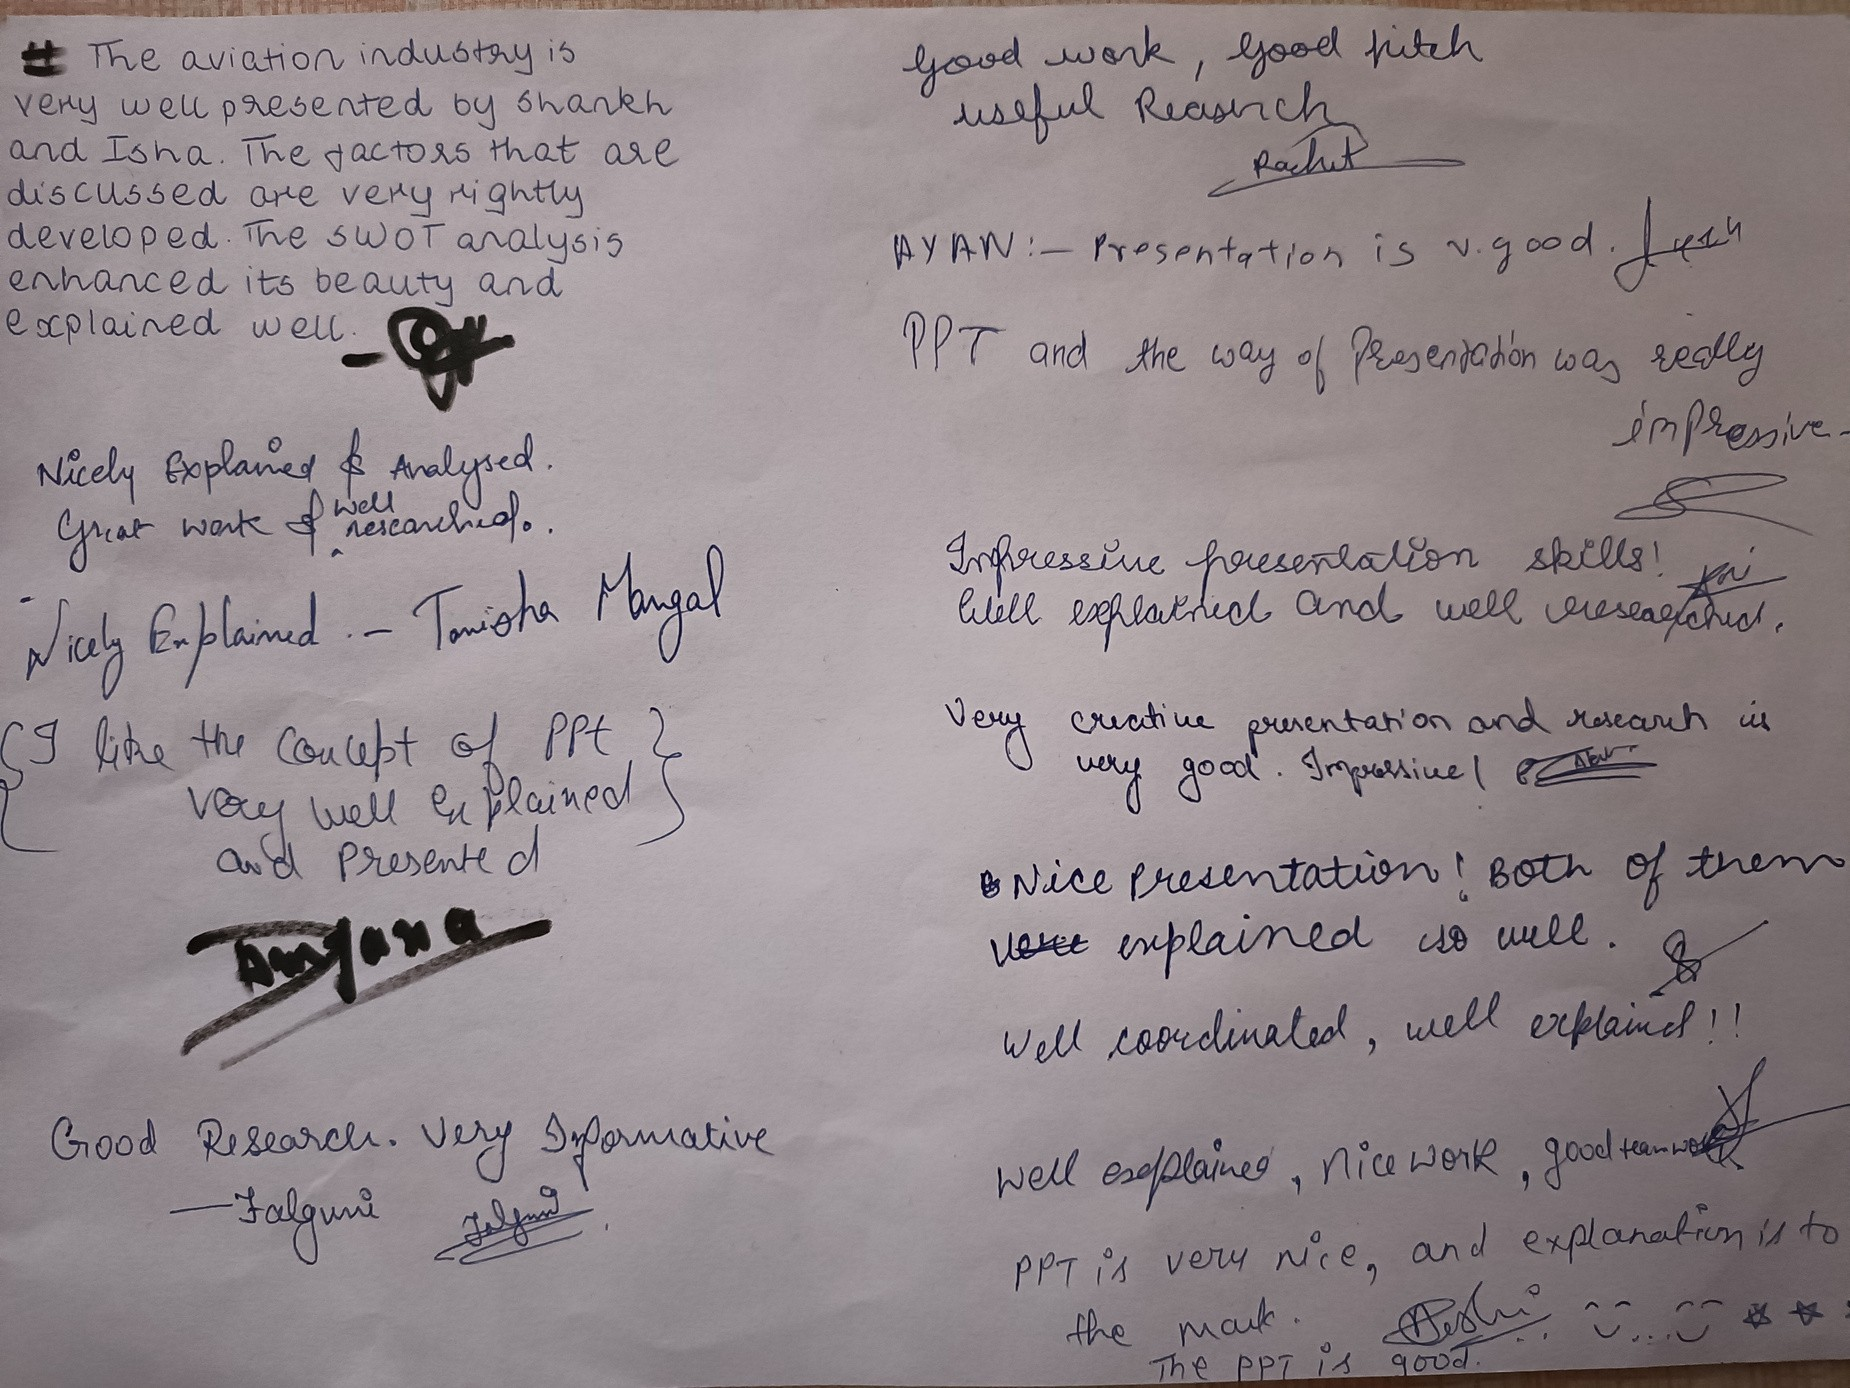 # The aviation industry is
very well presented by Shankh
and Isha. The factors that are
discussed are very rightly
developed. The SWOT analysis
enhanced its beauty and
explained well.
Nicely Explained & Analysed.
Great work & well researched.
Nicely Explained. - Tanisha Mangal
{ I like the concept of PPt }
very well explained
and Presented
Good Research. Very Informative
— Falguni Falguni
Good work, Good pitch
useful Reasrch
Rachit
AYAN:- Presentation is v.good.
PPT and the way of Presentation was really
impressive.
Impressive presentation skills!
Well explained and well researched.
Very creative presentation and research is
very good. Impressive!
Nice presentation! Both of them
explained so well.
Well coordinated, well explained!!
Well explained, nice work, good teamwork
PPT is very nice, and explanation is to
the mark.
The PPT is good.